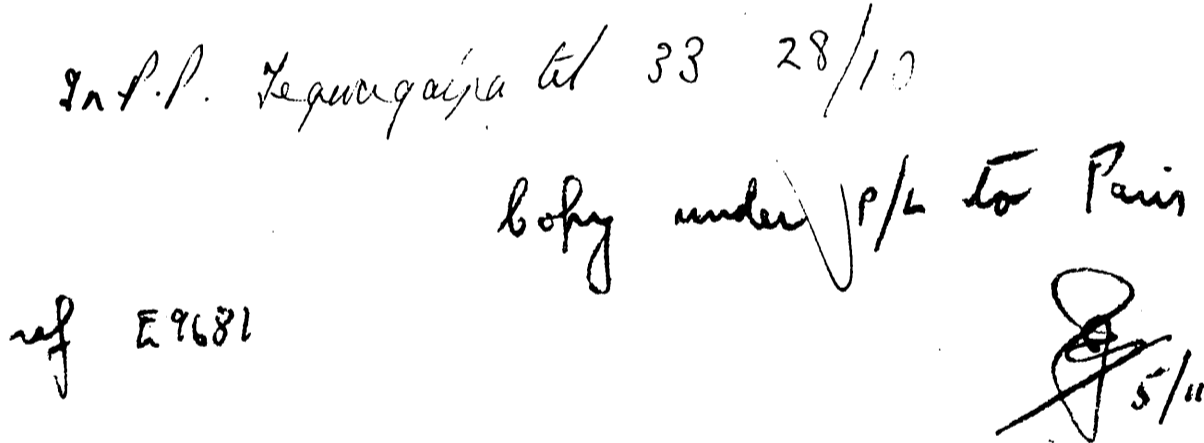 In P.P. Tegucigalpa tel 33 28/10
Copy under P/L to Paris
ref E9681
5/11